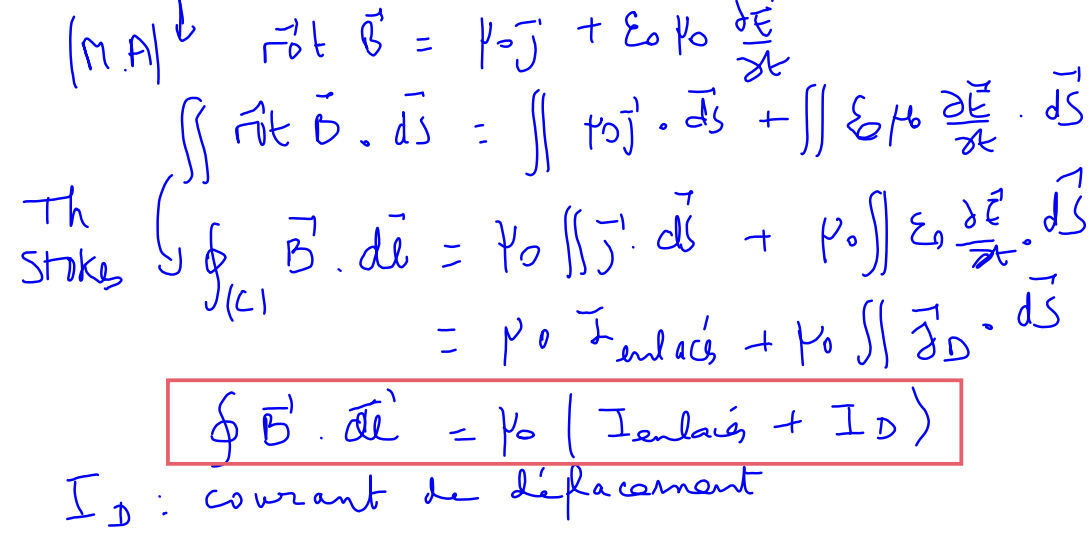 (M.A) ↓ rot B⃗ = μ₀ j⃗ + ε₀ μ₀ ∂E⃗/∂t
∬ rot B⃗ . dS⃗ = ∬ μ₀ j⃗ . dS⃗ + ∬ ε₀ μ₀ ∂E⃗/∂t . dS⃗
Th Stokes ∮(C) B⃗ . dl⃗ = μ₀ ∬ j⃗ . dS⃗ + μ₀ ∬ ε₀ ∂E⃗/∂t . dS⃗
= μ₀ I enlacés + μ₀ ∬ j⃗_D . dS⃗
∮ B⃗ . dl⃗ = μ₀ ( I enlacés + I_D )
I_D : courant de déplacement